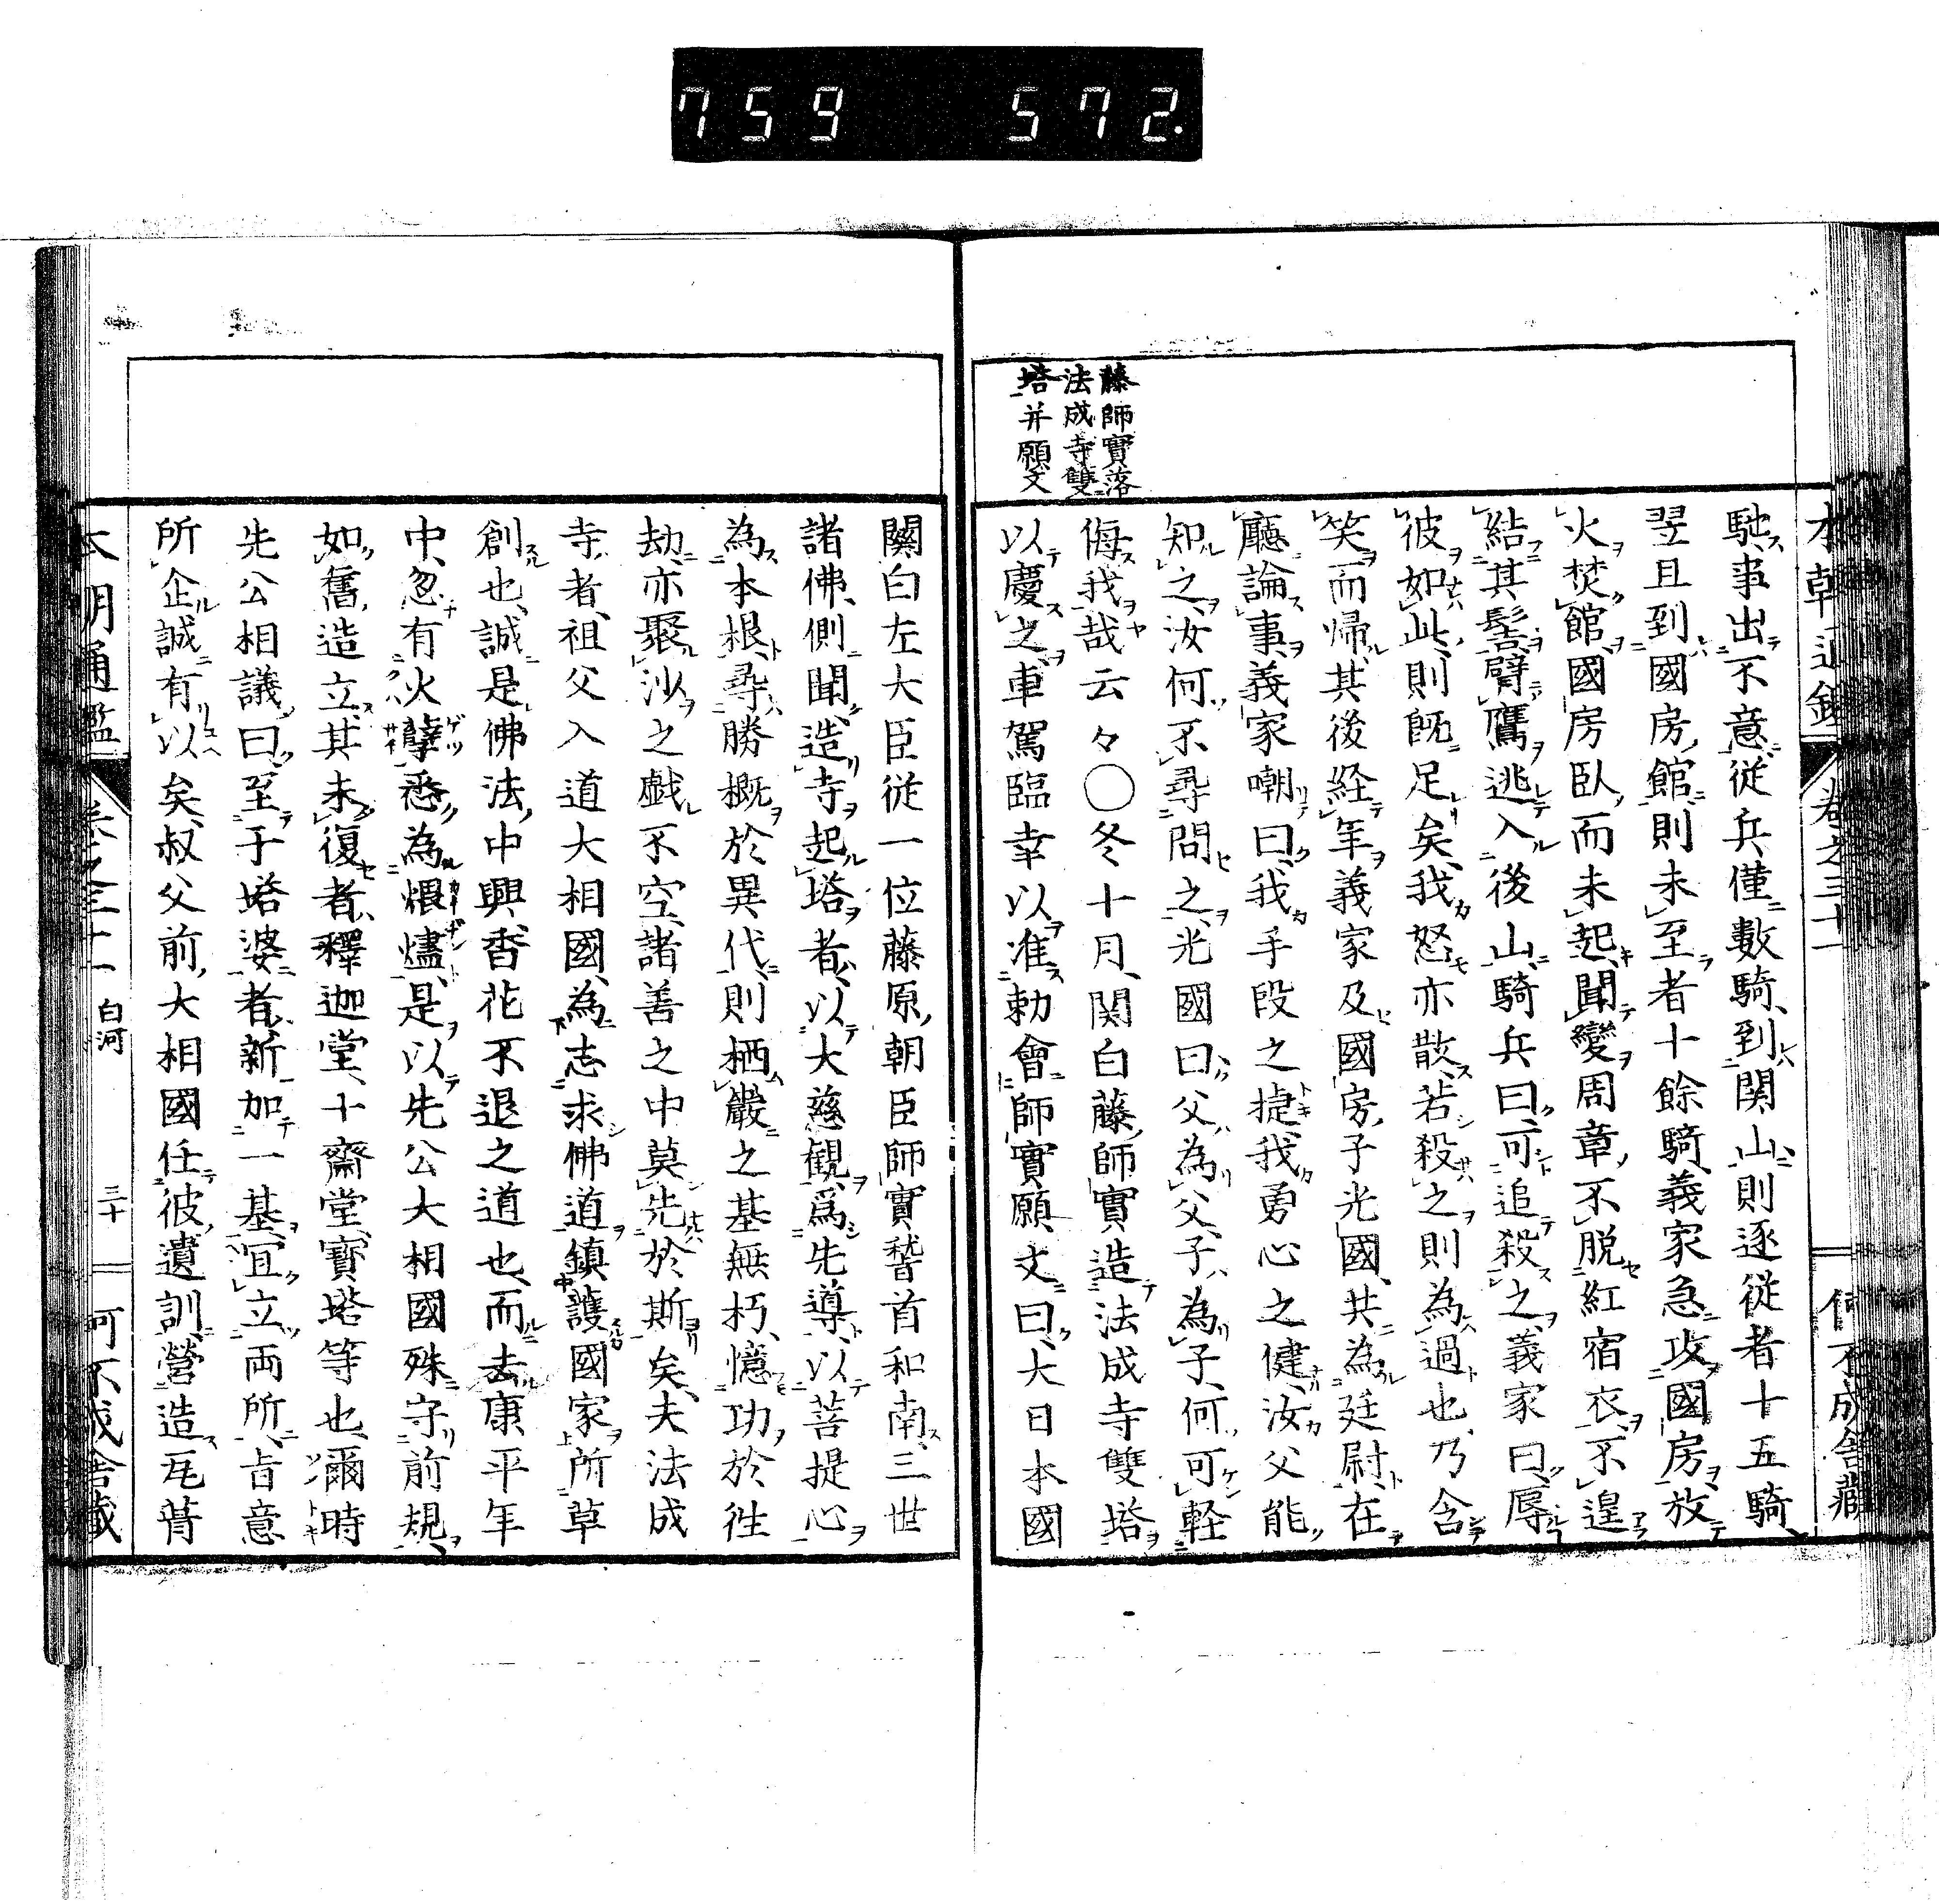 759 572.
本朝通鑑 卷之三十一 何不成舎藏
馳事出不意從兵僅數騎到関山則逐從者十五騎
翌且到國房館則未至者十餘騎義家急攻國房放
火焚館國房臥而未起聞變周章不脱紅宿衣不遑
結其髻臂鷹逃入後山騎兵曰可追殺之義家曰辱
彼如此則既足矣我怒亦散若殺之則為過也乃含
笑而帰其後経年義家及國房子光國共為廷尉在
廳論事義家嘲曰我手段之捷我勇心之健汝父能
知之汝何不尋問之光國曰父為父子為子何可軽
侮我哉云々○冬十月関白藤師實造法成寺雙塔
以慶之車駕臨幸以准勅會師實願文曰大日本國
藤師實落
法成寺雙
塔并願文
關白左大臣従一位藤原朝臣師實誓首和南三世
諸佛側聞造寺起塔者以大慈観爲先導以菩提心
為本根尋勝概於異代則栖巖之基無朽憶功於徃
劫亦聚沙之戯不空諸善之中莫先於斯矣夫法成
寺者祖父入道大相國為志求佛道鎮護國家所草
創也誠是佛法中興香花不退之道也而去康平年
中忽有火孽悉為煨燼是以先公大相國殊守前規
如舊造立其未復者釋迦堂十齋堂寳塔等也爾時
先公相議曰至于塔婆者新加一基宜立両所旨意
所企誠有以矣叔父前大相國任彼遺訓營造瓦葺
本朝通鑑 卷之三十一 白河 三十 何不成舎藏